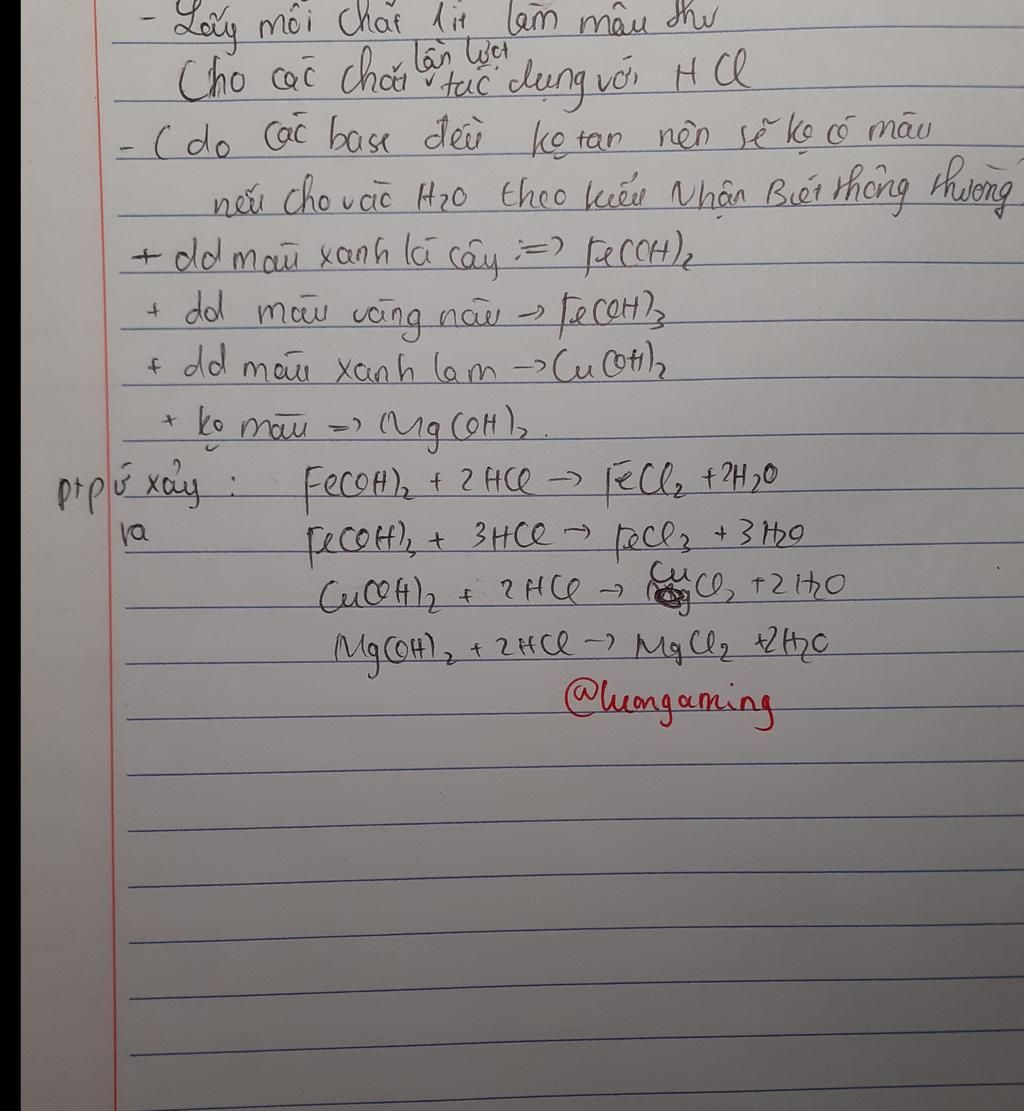 - Lấy mỗi chất 1 ít làm mẫu thử
Cho các chất lần lượt tác dụng với HCl
- (do các base đều ko tan nên sẽ ko có màu
nếu cho vào H2O theo kiểu Nhận Biết thông thường
+ dd màu xanh lá cây :=> Fe(OH)2
+ dd màu vàng nâu -> Fe(OH)3
+ dd màu xanh lam -> Cu(OH)2
+ ko màu => Mg(OH)2.
ptpứ xảy ra : Fe(OH)2 + 2HCl -> FeCl2 + 2H2O
Fe(OH)3 + 3HCl -> FeCl3 + 3H2O
Cu(OH)2 + 2HCl -> CuCl2 + 2H2O
Mg(OH)2 + 2HCl -> MgCl2 + 2H2O
@luongaming